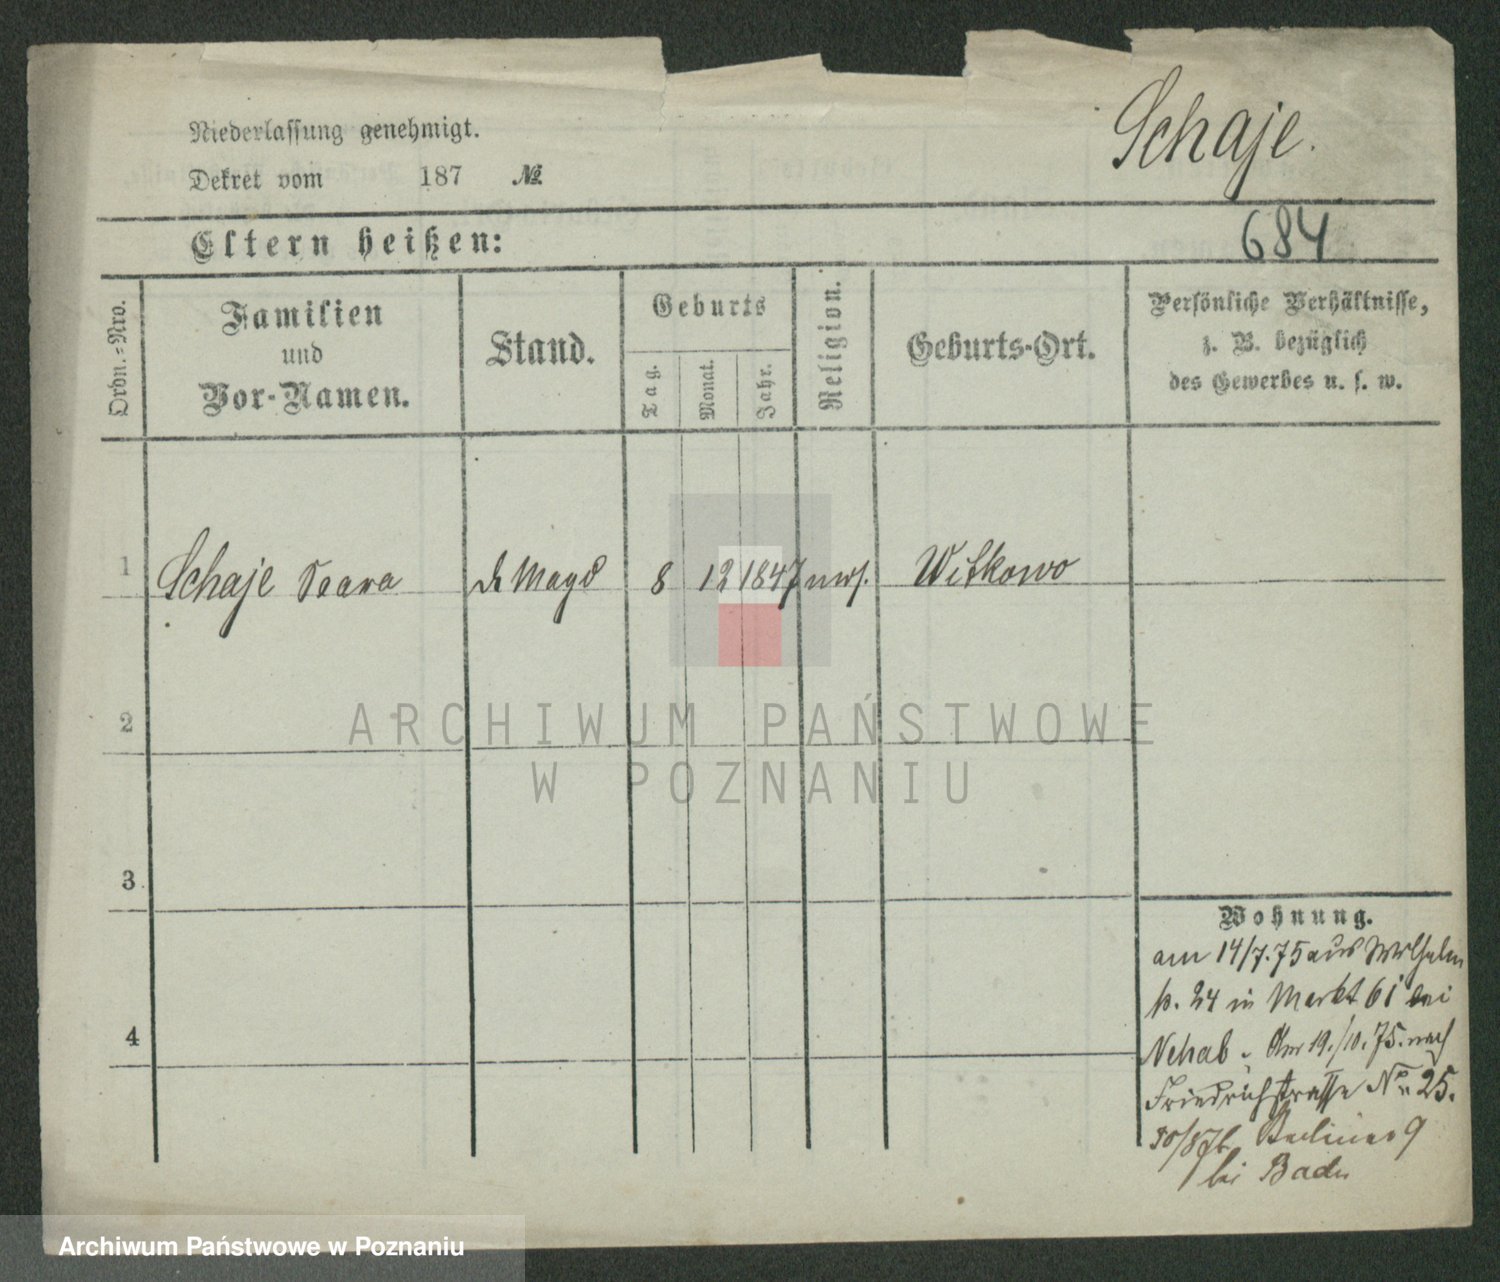 Schaje.
Niederlassung genehmigt.
Dekret vom 187 №
684
Eltern heißen:
Ordn.-Nro.
Familien
und
Vor-Namen.
Stand.
Geburts
Tag.
Monat.
Jahr.
Religion.
Geburts-Ort.
Persönliche Verhältnisse,
z. B. bezüglich
des Gewerbes u. s. w.
1 Schaje Magd 8 12 1847 mos. Witkowo
2
3
4
ARCHIWUM PAŃSTWOWE
W POZNANIU
Wohnung.
am 14/7.75 aus Wilhelm
p. 24 in Markt 61 bei
Nehab. Am 19./10.75. nach
Friedrichstrasse No. 25.
Berliner 9
bei
Archiwum Państwowe w Poznaniu